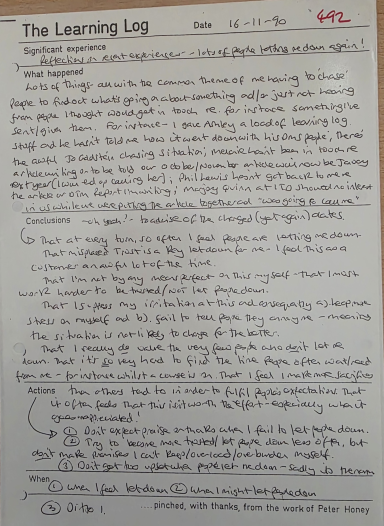 The Learning Log Date 16-11-90 492
Significant experience
Reflections on recent experiences - lots of people letting me down again!
What happened
Lots of things - all with the common theme of me having to 'chase'
people to find out what's going on about something and/or just not hearing
from people I thought would get in touch re. for instance something I've
sent/given them. For instance - I gave Ashley a load of learning log
stuff and he hasn't told me how it went down with his people, there's
the awful chasing situation; hasn't been in touch re
article writing or to be told our October/November article will now be January
next year (I was ed up calling her), Phil Lewis hasn't got back to me re
the article on Report I'm writing; Marjory Quinn at ITD showed no interest
in us while we were putting the article together and "was going to call me"
Conclusions - oh yeah! - to advise of the changed (yet again) dates.
That at every turn, so often I feel people are letting me down.
That misplaced trust is a key let down for me - I feel this as a
customer an awful lot of the time.
That I'm not by any means perfect on this myself - that I must
work harder to be trusted/not let people down.
That I suppress my irritation at this and consequently a) heap more
stress on myself and b). fail to tell people they annoy me - meaning
the situation is not likely to change for the better.
That I really do value the very few people who don't let me
down. That it's so very hard to find the line people often want/need
from me - for instance whilst a course is on. That I feel I make more sacrifices
Actions than others tend to in order to fulfil people's expectations. That
it often feels that this isn't worth the effort - especially when it
goes unappreciated!
① Don't expect praise or thanks when I fail to let people down.
② Try to become more trusted/let people down less often, but
don't make promises I can't keep/overload/overburden myself.
③ Don't get too upset when people let me down - sadly it's the norm
When
① when I feel let down ② when I might let people down
③ Ditto 1. ....pinched, with thanks, from the work of Peter Honey